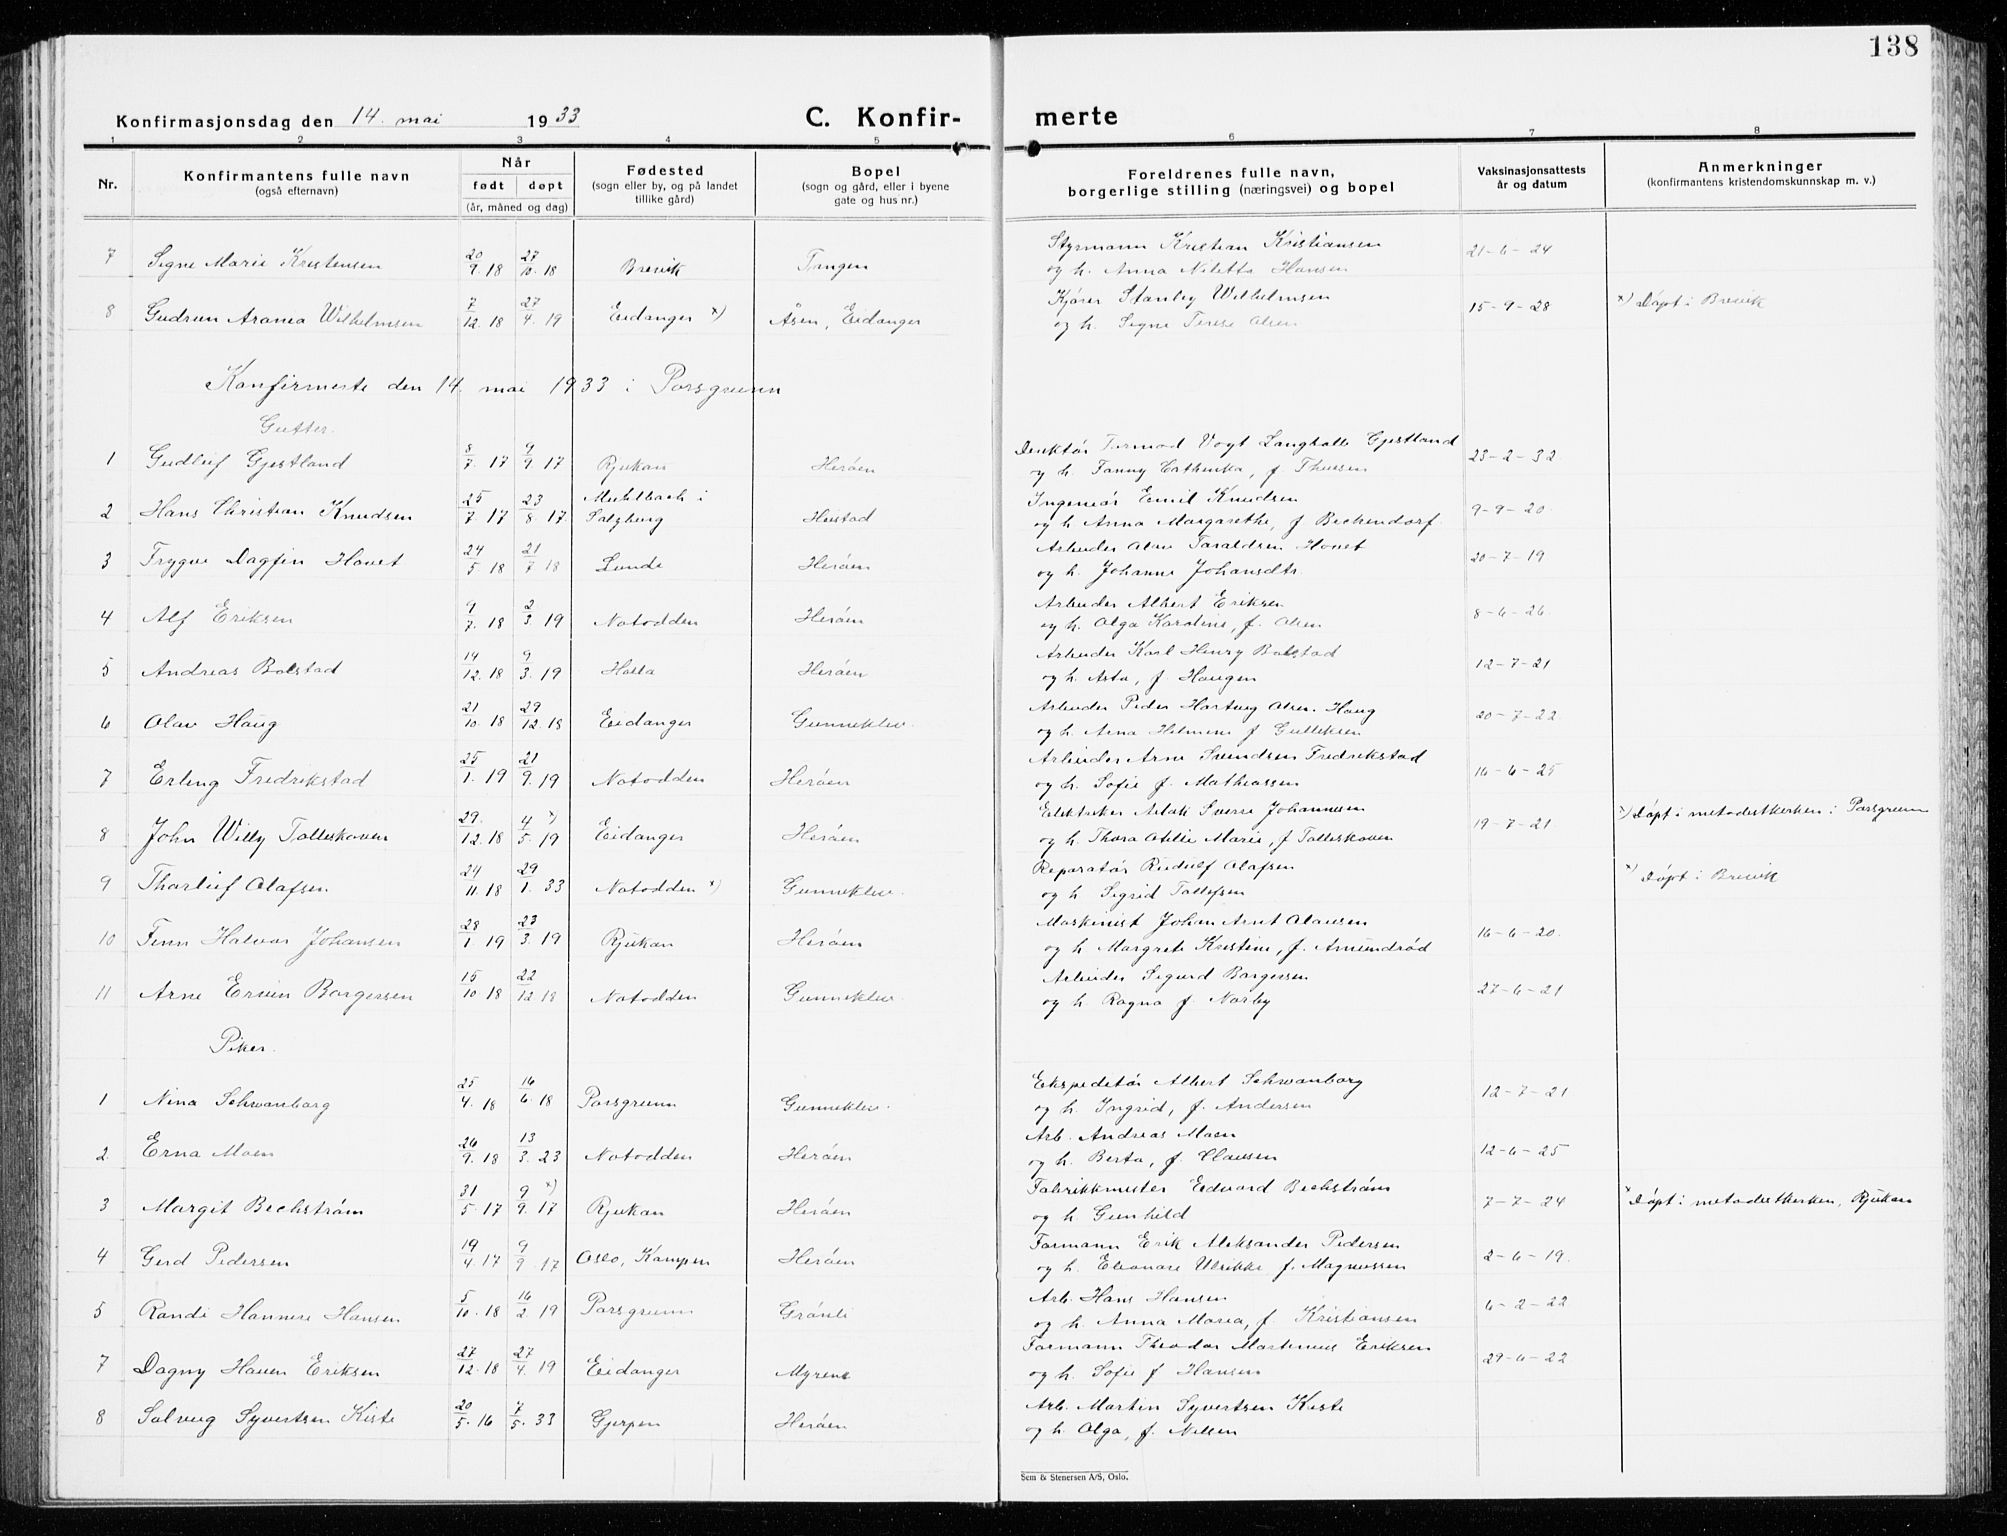 138
Konfirmasjonsdag den 14. mai 1933 C. Konfir- merte
1 2 3 4 5 6 7 8
Nr. Konfirmantens fulle navn (også efternavn) Når født døpt (år, måned og dag) Fødested (sogn eller by, og på landet tillike gård) Bopel (sogn og gård, eller i byene gate og hus nr.) Foreldrenes fulle navn, borgerlige stilling (næringsvei) og bopel Vaksinasjonsattests år og datum Anmerkninger (konfirmantens kristendomskunnskap m. v.)
7 Signe Marie Kristensen 20/9. 18 27/10. 18 Brevik Tangen Styrmann Kristian Kristiansen 21-6-24
og h. Anna Nilette Hansen
8 Gudrun Arania Wilhelmsen 7/12. 18 27/4. 19 Eidanger x) Åsen, Eidanger Kjører Stanley Wilhelmsen 15-9-28 x) Døpt i Brevik
og h. Signe Terese Olsen
Konfirmerte den 14. mai 1933 i Porsgrunn
Gutter.
1 Gudleif Gjestland 8/7. 17 9/9. 17 Rjukan Herøen Direktør Tormod Vogt Langballe Gjestland 23-2-32
og h. Fanny Cathinka, f. Thuesen
2 Hans Christian Knudsen 25/7. 17 23/8. 17. Muhlbach i Salzburg Heistad Ingeniør Emil Knudsen 9-9-20
og h. Anna Margarethe, f. Beckendorf.
3 Trygve Dagfin Hovet 24/5. 18 21/7. 18 Lunde Herøen Arbeider Olav Taraldsen Hovet 20-7-19
og h. Johanne Johansdtr.
4 Alf Eriksen 9/7. 18 2/3. 19 Notodden Herøen Arbeider Albert Eriksen 8-6-26
og h. Olga Karoline, f. Olsen
5 Andreas Bolstad 14/12. 18 9/3. 19 Holla Herøen Arbeider Karl Henry Bolstad 12-7-21
og h. Asta, f. Haugen
6 Olav Haug 21/10. 18 29/12. 18 Eidanger Gunneklev. Arbeider Peder Hartvig Olsen Haug 20-7-22
og h. Anna Helmine f Gulliksen
7 Erling Fredrikstad 25/1. 19 21/9. 19 Notodden Herøen Arbeider Arne Svendsen Fredrikstad 16-6-25
og h. Sofie f. Mathiassen
8 John Willy Tolleskoven 29./12. 18 4 x)/5. 19 Eidanger Herøen Elektriker Aslak Sverre Johannesen 19-7-21 x) Døpt i metodistkirken i Porsgrunn
og h. Thora Otilie Marie, f. Tolleskoven
9 Thorleif Olafsen 24/11. 18 29/1. 33 Notodden x) Gunneklev. Reparatør Rudolf Olafsen x) Døpt i Brevik
og h. Sigrid Tollefsen
10 Finn Halvor Johansen 28/1. 19 23/3. 19 Rjukan Herøen Maskinist Johan Arnt Olausen 16-6-20.
og h. Margrete Kristine, f. Amundrød
11 Arne Ervin Borgersen 15/10. 18 22/12. 18 Notodden Gunneklev. Arbeider Sigurd Borgersen 27-6-21
og h. Ragna f. Norby
Piker.
1 Nina Schwanborg 25/4. 18 16/6. 18 Porsgrunn Gunneklev. Ekspeditør Albert Schwanborg 12-7-21
og h. Ingrid, f. Andersen
2. Erna Moen 26/9. 18 13/3. 23 Notodden Herøen Arb. Andreas Moen 12-6-25
og h. Berta, f. Clausen
3 Margit Bechstrøm 31/5. 17 9 x)/9. 17 Rjukan Herøen Fabrikkmester Edvard Bechstrøm 7-7-24 x Døpt i metodistkirken, Rjukan
og h. Gunhild
4 Gerd Pedersen 19/4. 17 9/9. 17 Oslo, Kampen Herøen Formann Erik Aleksander Pedersen 2-6-19.
og h. Eleonore Ulrikke f. Magnussen
5 Randi Hannere Hansen 5/10. 18 16/2. 19 Porsgrunn Grønli Arb. Hans Hansen 6-2-22
og h. Anna Maria, f. Kristiansen
7 Dagny Haven Eriksen 27/12. 18 27/4. 19 Eidanger Myrene Formann Theodor Martinius Eriksen 29-6-22
og h. Sofie f Hansen
8 Solveig Syvertsen Kiste 20/5. 16 7/5. 33 Gjerpen Herøen Arb. Martin Syvertsen Kiste
og h. Olga, f. Nilsen
Sem & Stenersen A/S, Oslo.